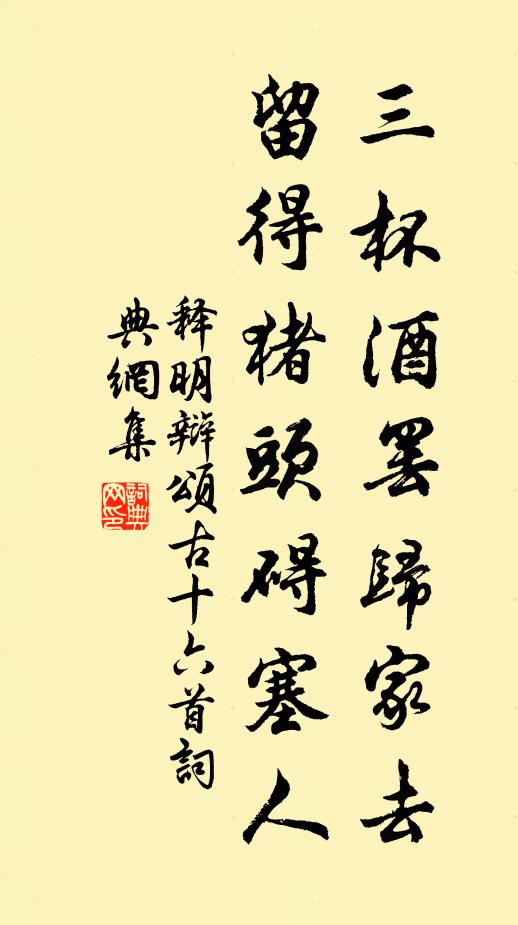 三杯酒罢歸家去
留得猪頭碍塞人
释明辩頌古十六首詞
典網集
詞典网印